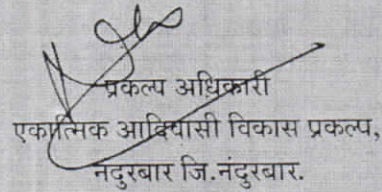 प्रकल्प अधिकारी
एकात्मिक आदिवासी विकास प्रकल्प,
नंदुरबार जि.नंदुरबार.